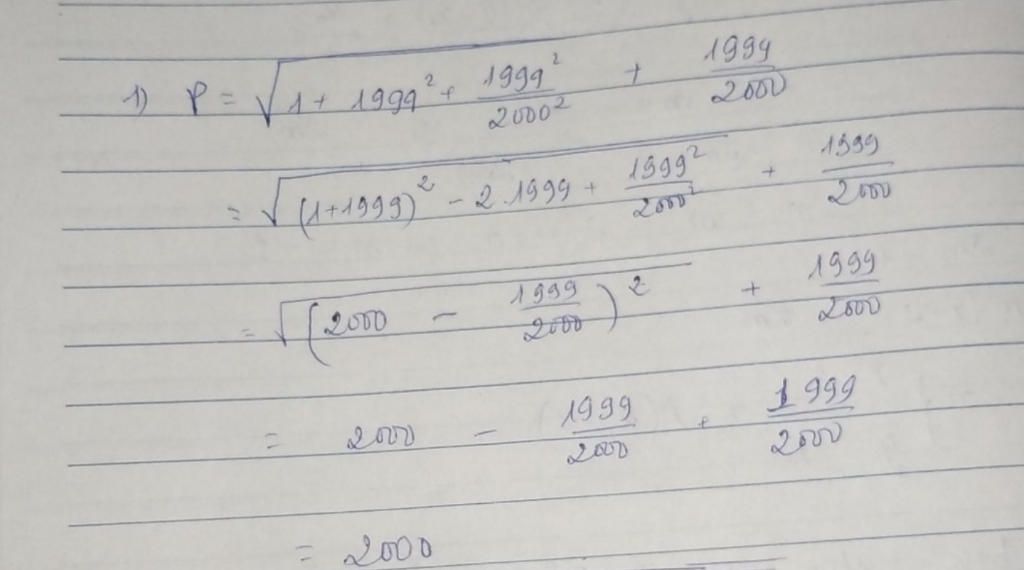 1) P = √(1 + 1999² + 1999²/2000²) + 1999/2000
= √((1+1999)² - 2.1999 + 1999²/2000²) + 1999/2000
= √((2000 - 1999/2000)²) + 1999/2000
= 2000 - 1999/2000 + 1999/2000
= 2000